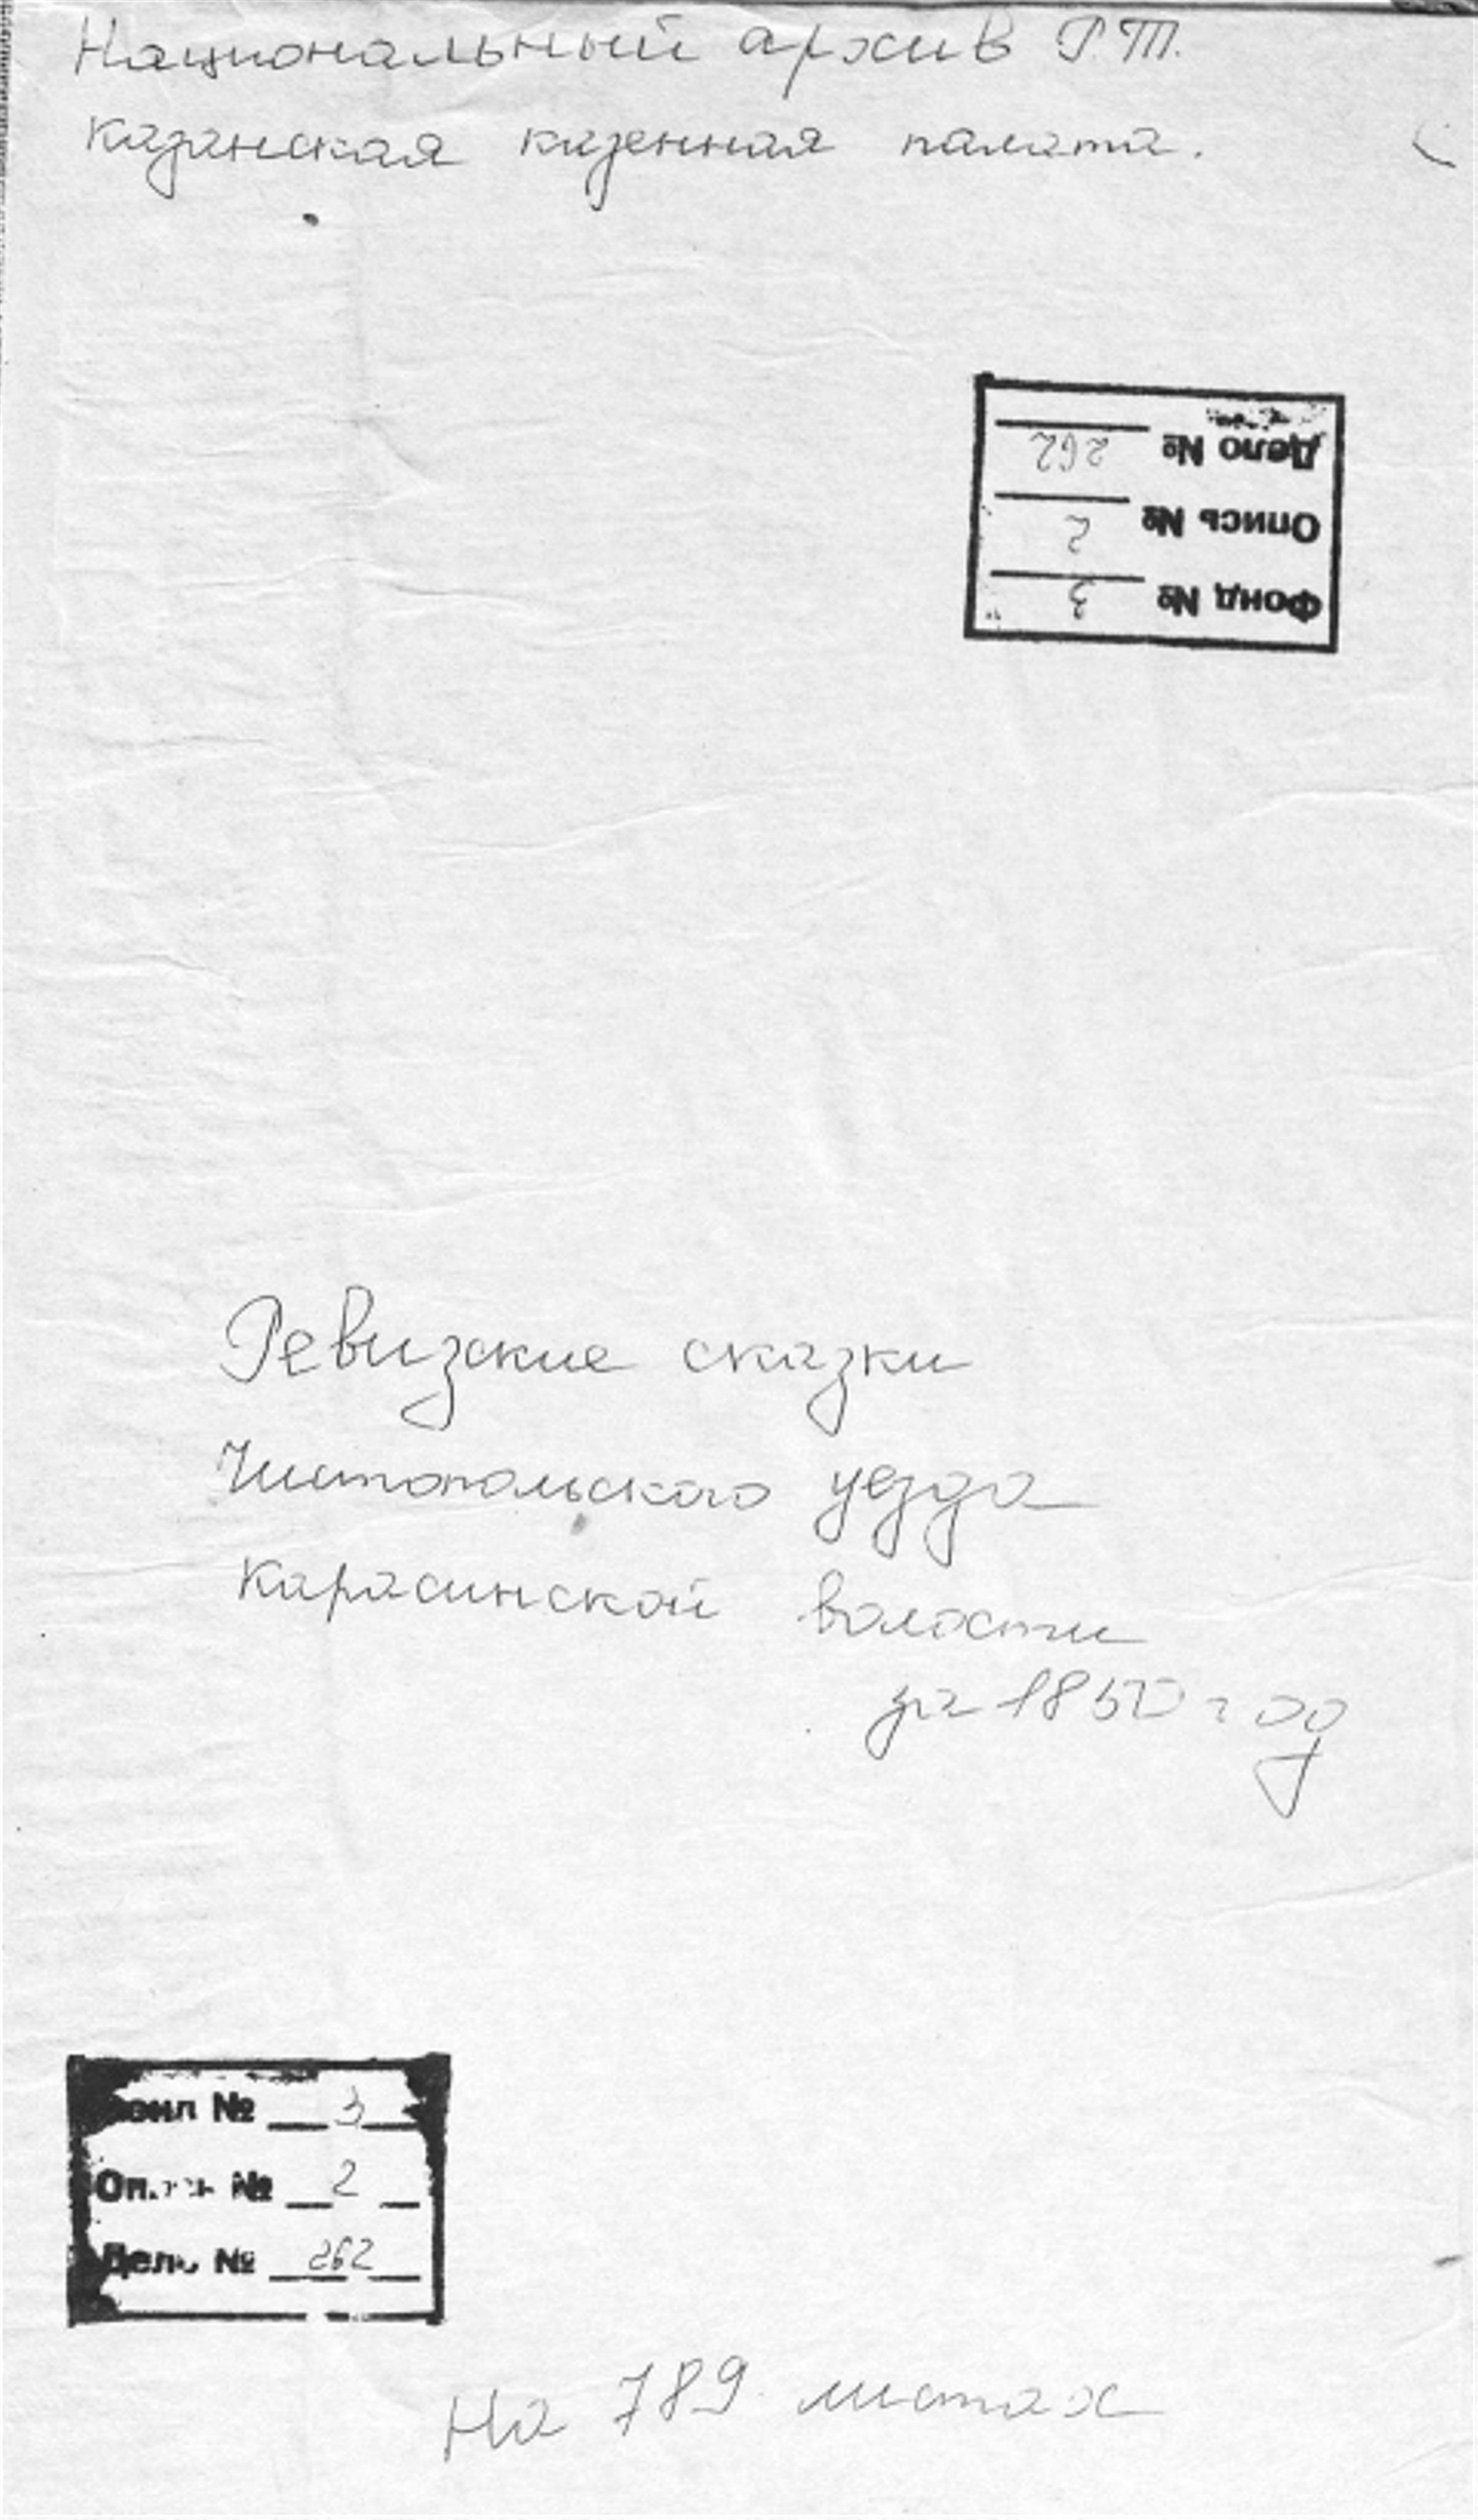 Национальный архив Р.Т.
Казанская казенная палата.
Фонд № 3
Опись № 2
Дело № 262
Ревизские сказки
Чистопольского уезда
Карасинской волости
за 1850 год
Фонд № 3
Опись № 2
Дело № 262
На 789 листах